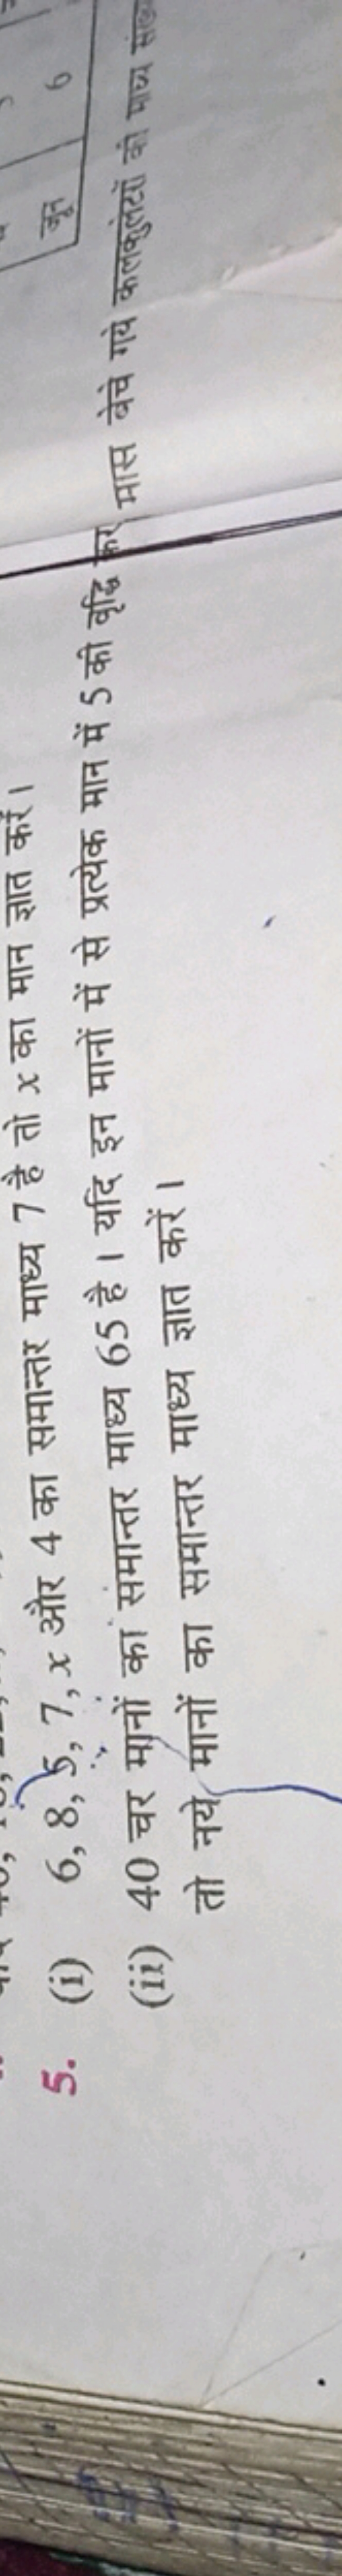 5. (i) 6, 8, 5, 7, x और 4 का समान्तर माध्य 7 है तो x का मान ज्ञात करें।
(ii) 40 चर मानों का समान्तर माध्य 65 है। यदि इन मानों में से प्रत्येक मान में 5 की वृद्धि कर
तो नये मानों का समान्तर माध्य ज्ञात करें।
जून 6
मास बेचे गये कलकुलेटरों की माध्य